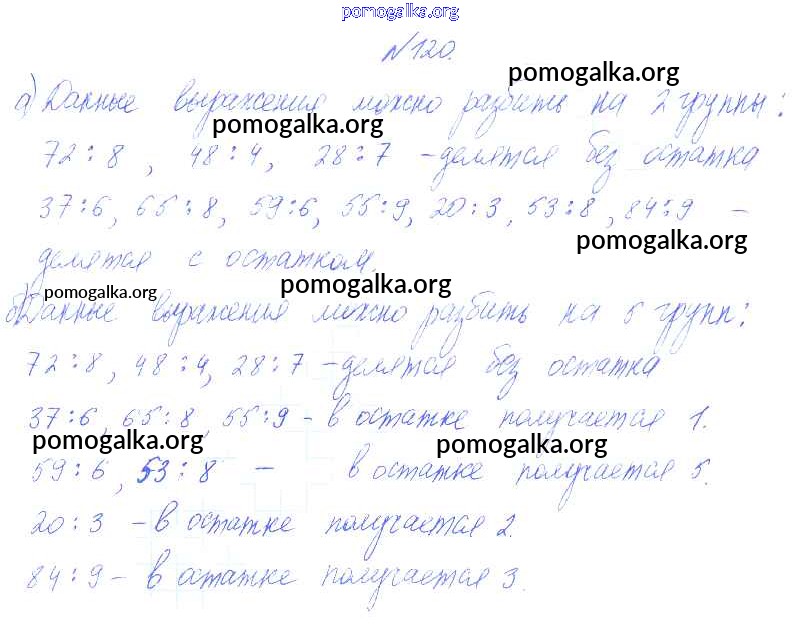 pomogalka.org
№120.
pomogalka.org
а) Данные выражения можно разбить на 2 группы:
pomogalka.org
72:8, 48:4, 28:7 - делятся без остатка
37:6, 65:8, 59:6, 55:9, 20:3, 53:8, 84:9 -
pomogalka.org
делятся с остатком.
pomogalka.org
pomogalka.org
б) Данные выражения можно разбить на 5 групп:
72:8, 48:4, 28:7 - делятся без остатка
37:6, 65:8, 55:9 - в остатке получается 1.
pomogalka.org
pomogalka.org
59:6, 53:8 - в остатке получается 5.
20:3 - в остатке получается 2.
84:9 - в остатке получается 3.